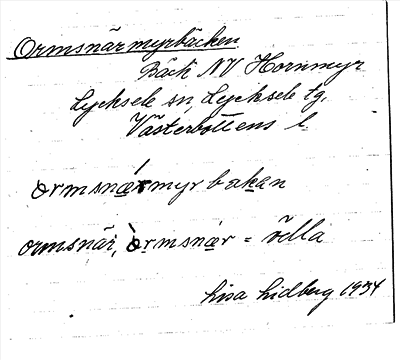 Ormsnärmyrbäcken
Bäck NV Hornmyr
Lycksele sn, Lycksele tg,
Västerbottens l.
ormsnærmyrbakan
ormsnär, òrmsnær = ödla
Lisa Lidberg 1934